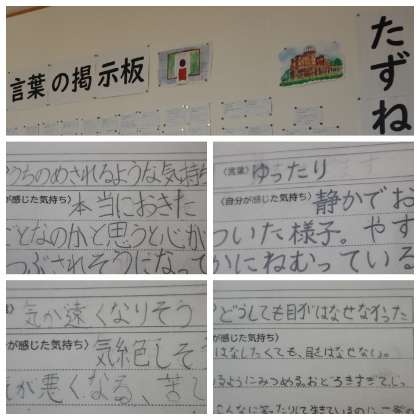 言葉の掲示板
たずね
うちのめされるような気持ち
が感じた気持ち）本当におきた
ことなのかと思うと心が
つぶされそうになって
〈言葉〉ゆったり
〈自分が感じた気持ち〉静かでお
ついた様子。やす
かにねむっている
気が遠くなりそう
が感じた気持ち〉気絶しそ
が悪くなる、苦し
どうしても目がはなせなかった
が感じた気持ち）
はなしたくても、目はなせない。
るようにみつめる。おどろきすぎて、じっ